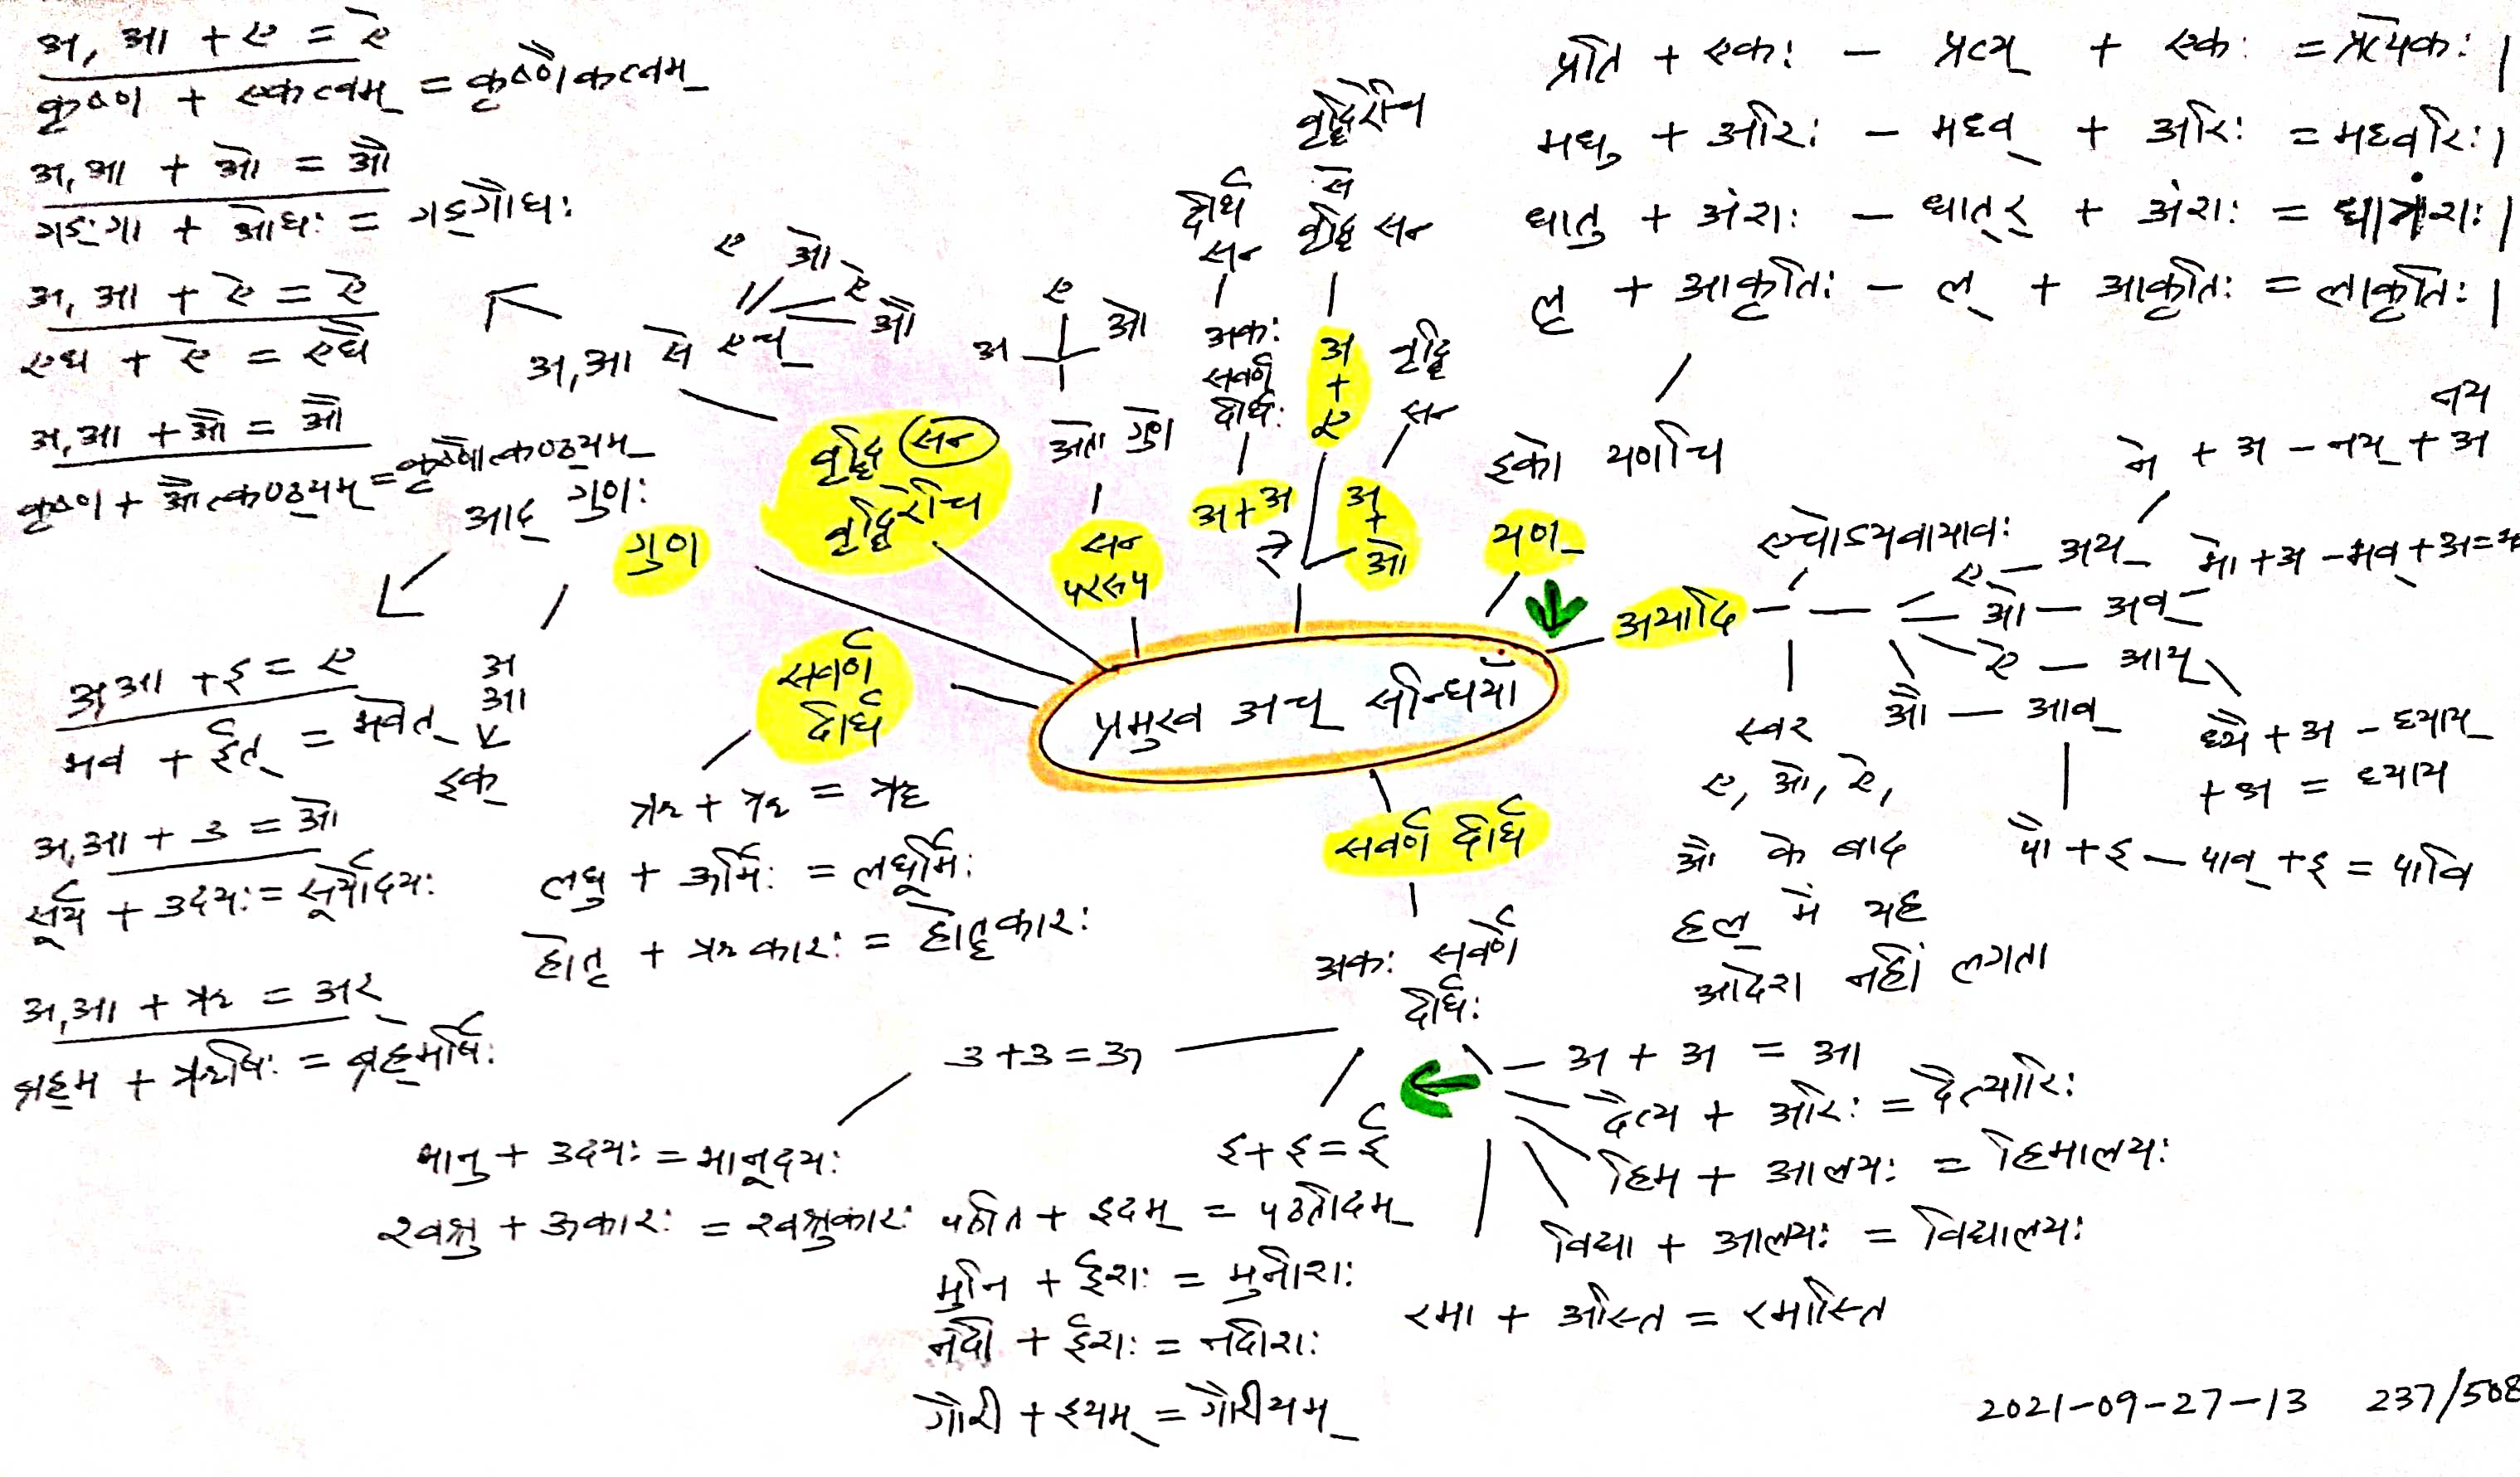 अ, आ + ए = ऐ
कृष्ण + एकत्वम् = कृष्णैकत्वम्
अ, आ + ओ = औ
गङ्गा + ओघः = गङ्गौघः
अ, आ + ऐ = ऐ
एध + ऐ = एधै
अ, आ + औ = औ
कृष्ण + औत्कण्ठ्यम् = कृष्णौत्कण्ठ्यम्
ए ओ ऐ औ
अ, आ से एच्
वृद्धि सन्
वृद्धिरेचि
ए
अ ओ
अतो गुण
सन्
पररुप
दीर्घ
सन्
अकः
सवर्ण
दीर्घः
अ + अ
रे
वृद्धिरेचि
से
वृद्धि सन्
अ
+
ए
वृद्धि
सन्
अ
+
ओ
प्रति + एकः – प्रत्य् + एकः = प्रत्येकः |
मधु + अरिः – मध्व् + अरिः = मध्वरिः |
धातृ + अंशः – धातर् + अंशः = धात्रंशः |
लृ + आकृतिः – ल् + आकृतिः = लाकृतिः |
इको यणचि
यण्
नय
ने + अ – नय् + अ
एचोऽयवायावः
अयादि
ए – अय्
भो + अ – भव् + अ =
ओ – अव्
ऐ – आय्
औ – आव्
ध्यै + अ – ध्याय्
+ अ = ध्याय
पौ + इ – पाव् + इ = पावि
स्वर
ए, ओ, ऐ,
औ के बाद
हल् में यह
आदेश नहीं लगता
प्रमुख अच् सन्धियाँ
आद् गुणः
गुण
अ
आ
इक्
अ, आ + इ = ए
भव + ईत् = भवेत्
अ, आ + उ = ओ
सूर्य + उदयः = सूर्योदयः
अ, आ + ऋ = अर्
ब्रह्म + ऋषिः = ब्रह्मर्षिः
सवर्ण
दीर्घ
ऋ + ऋ = ॠ
लघु + ऊर्मिः = लघूर्मिः
होतृ + ऋकारः = होतॄकारः
सवर्ण दीर्घ
अकः सवर्णे
दीर्घः
उ + उ = ऊ
भानु + उदयः = भानूदयः
श्वश्रु + ऊकारः = श्वश्रुकारः
इ + इ = ई
पठति + इदम् = पठतीदम्
मुनि + ईशः = मुनीशः
नदी + ईशः = नदीशः
गौरी + इयम् = गौरीयम्
अ + अ = आ
दैत्य + अरिः = दैत्यारिः
हिम + आलयः = हिमालयः
विद्या + आलयः = विद्यालयः
रमा + अस्ति = रमास्ति
2021-09-27-13 237/508